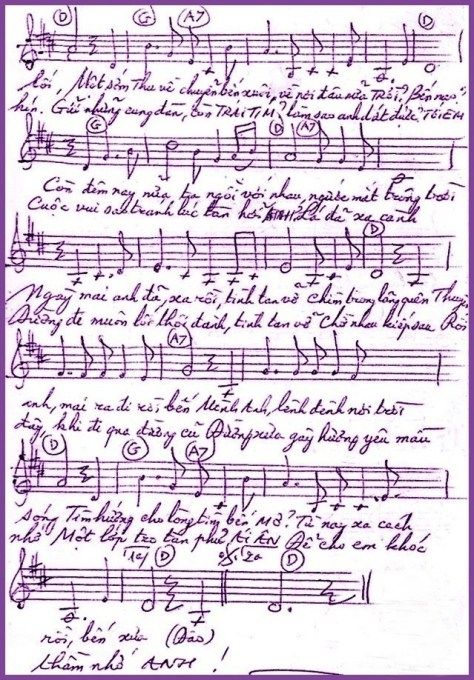 D G A7 D
lối. Một sớm thu về chuyện bến xưa, về nơi đâu nửa TRỜI? Bến nao
hẹn. Gửi những cung đàn, con TRÁI TIM? làm sao anh dắt được TÔI EM
G D A7
Còn đêm nay nữa ta ngồi với nhau, người mất trông trời
Cuộc vui sao tranh lúc tan hơi ANH, đã đã xa cành
D
Ngày mai anh đã, xa rồi, tình tan vỡ chìm trong lãng quên Thuyền
Đường đi muôn lối thôi đành, tình tan vỡ Chờ nhau kiếp sau Rồi
A7
anh, mai ra đi rồi, bến Minh Anh, lênh đênh nơi trời
đây, khi đi qua đường cũ Đường xưa gây hương yêu màu
D G A7
sóng Tìm hướng cho lòng tìm bến MƠ? Từ nay xa cách
nhớ Một lớp tro tàn phủ ÁI ÂN Để cho em khóc
D 20 D
rồi, bến xưa (Đào)
thầm nhớ ANH !